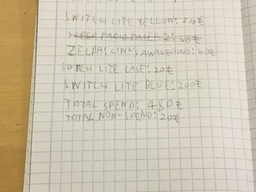 SWITCH LITE YELLOW: 200€
SUPER MARIO MAKER 2: 60€
ZELDA: LINK'S AWAKENING: 60€
SWITCH LITE CASE: 20€
SWITCH LITE BLUE: 200€
TOTAL SPEND: 480€
TOTAL NON-SPEND: 20€